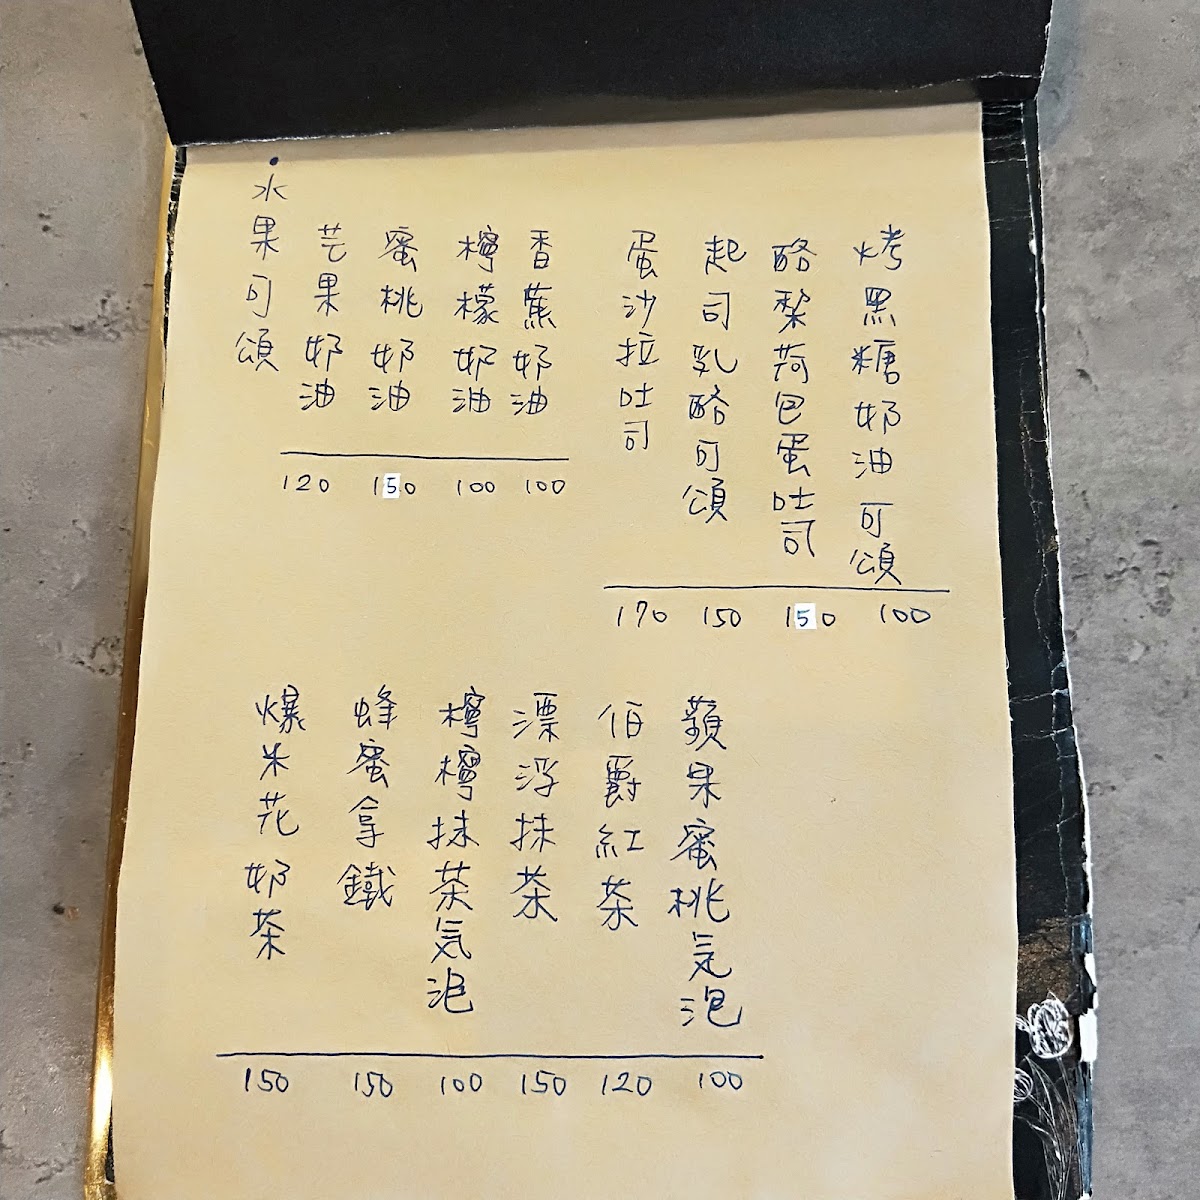 •水果可頌
芒果奶油
蜜桃奶油
檸檬奶油
香蕉奶油
120 150 100 100
蛋沙拉吐司
起司乳酪可頌
酪梨荷包蛋吐司
烤黑糖奶油可頌
170 150 150 100
爆米花奶茶
蜂蜜拿鐵
檸檸抹茶気泡
漂浮抹茶
伯爵紅茶
蘋果蜜桃気泡
150 150 100 150 120 100